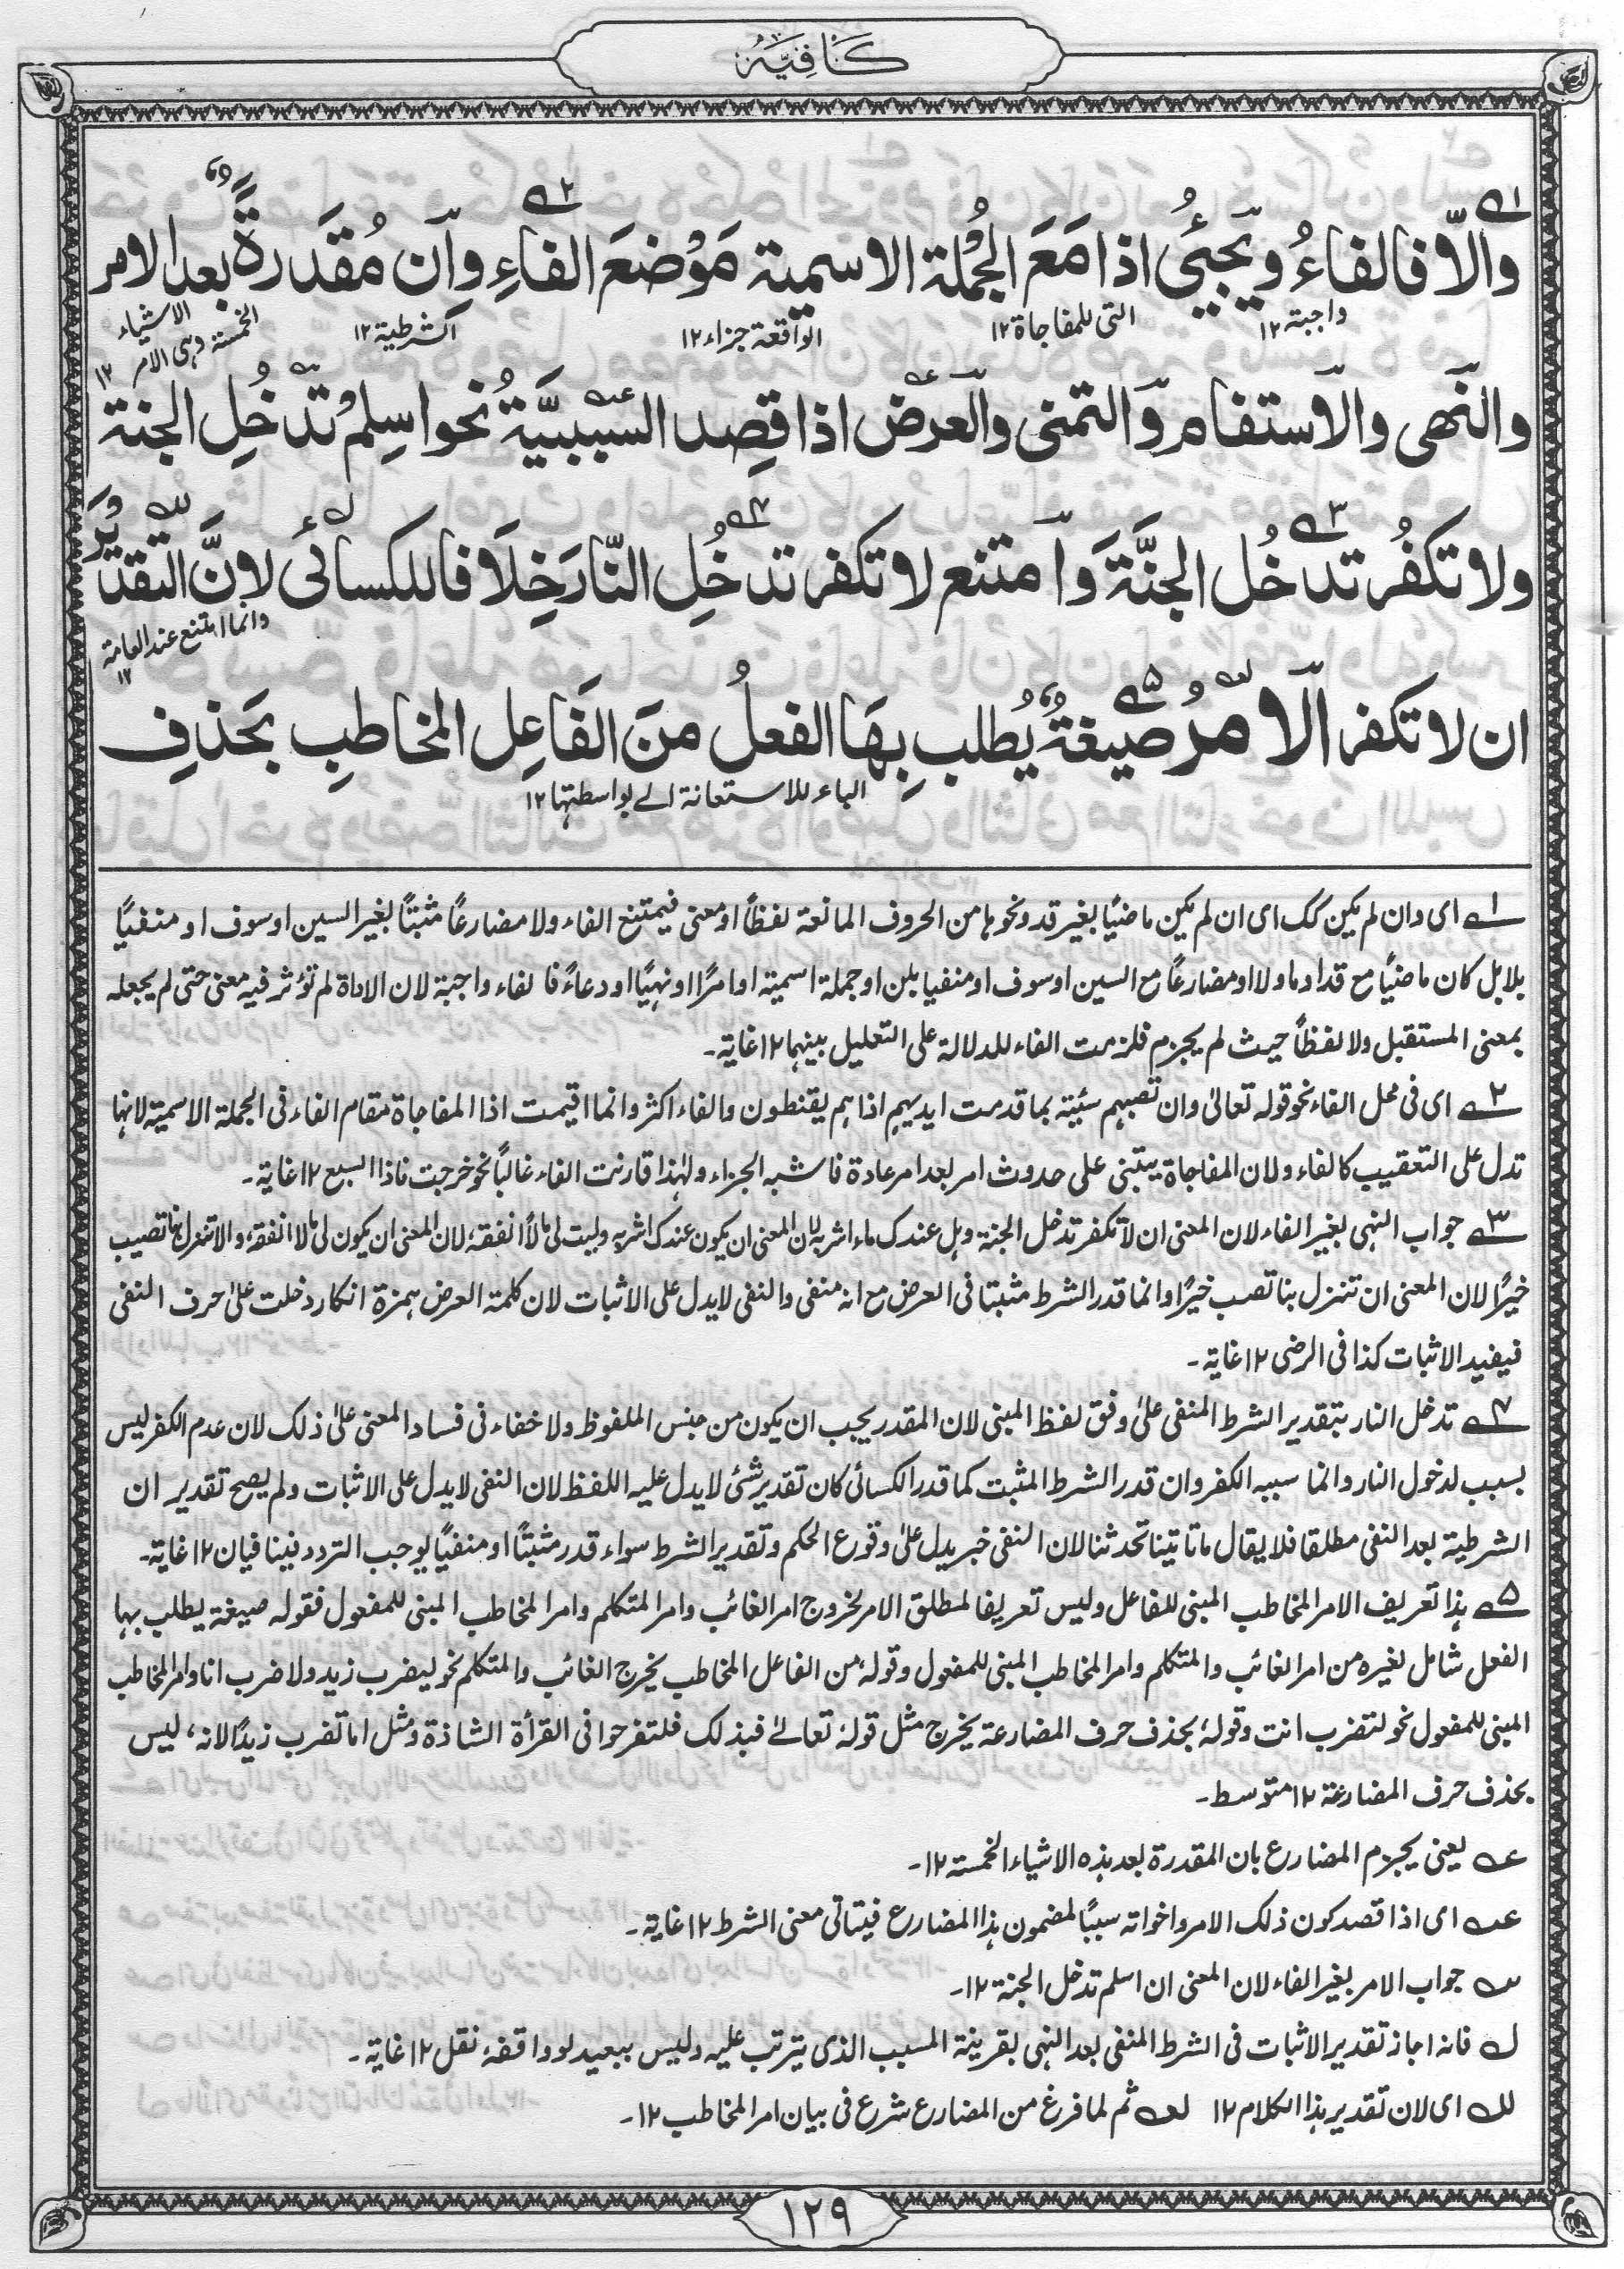 كَافِيَة
وَالّا فالفاءُ ويَجيئُ اذا مَعَ الجُملة الاسمية مَوْضعَ الفاءِ وَاَن مُقدَرةً بعد الامر
واجبة ١٢ التى للمفاجاة ١٢ الواقعة جزاء ١٢ الشرطية ١٢ الاشياء الخمسة وہى الامر ١٢
والنَهى والاستفام والتمنى والعَرض اذا قصِد السببيَّةُ نحو اسلِمْ تدخُلِ الجنة
ولا تكفُر تدخُل الجنَّةَ وَامتنع لا تكفر تدخُلِ النّار خِلَافا للكسائى لانَّ التقديرَ
وانما امتنع عند العامة ١٢
ان لا تكفر الامرُ صيغةٌ يُطلب بِهَا الفعلُ منَ الفَاعِل المخاطبِ بحَذفِ
الباء للاستعانة الے بواسطتہا ١٢
١ اى وان لم يكن كك اى ان لم يكن ماضيًا بغير قد ونحوہا من الحروف المانعة لفظاً او معنى فيمتنع الفاء ولا مضارعاً مثبتاً بغير السين او سوف او منفياً
بلا بل كان ماضياً مع قد او ما ولا او مضارعاً مع السين او سوف او منفيا بلن او جملة اسمية او امرًا او نہيًا او دعاءً فا لفاء واجبة لان الاداة لم تؤثر فيه معنى حتى لم يجعله
بمعنى المستقبل ولا لفظاً حيث لم يجزم فلزمت الفاء للدلالة على التعليل بينہما ١٢ غاية۔
٢ اى فى محل الفاء نحو قوله تعالىٰ وان تصبہم سئية بما قدمت ايديہم اذا ہم يقنطون والفاء اكثر وانما اقيمت اذا المفاجاة مقام الفاء فى الجملة الاسمية لانہا
تدل على التعقيب كالفاء ولان المفاجاة يبتنى على حدوث امر بعد امر عادة فاشبه الجزاء ولہٰذا قارنت الفاء غالباً نحو خرجت فاذا السبع ١٢ غاية۔
٣ جواب النہى بغير الفاء لان المعنى ان لا تكفر تدخل الجنة وہل عندك ماء اشربه لان المعنى ان يكون عندك اشربه وليت لى مالاً انفقه لان المعنى ان يكون لى مالا انفقه والا تنزل بنا تصيب
خيرًا لان المعنى ان تنزل بنا تصب خيرًا وانما قدر الشرط مثبتا فى العرض مع انه منفى والنفى لا يدل على الاثبات لان كلمة العرض ہمزة انكار دخلت علىٰ حرف النفى
فيفيد الاثبات كذا فى الرضى ١٢ غاية۔
٤ تدخل النار بتقدير الشرط المنفى علىٰ وفق لفظ المبنى لان المقدر يجب ان يكون من جنس الملفوظ ولا خفاء فى فساد المعنى علىٰ ذلك لان عدم الكفر ليس
بسبب لدخول النار وانما سببه الكفر وان قدر الشرط المثبت كما قدر الكسائى كان تقدير شئ لا يدل عليه اللفظ لان النفى لا يدل على الاثبات ولم يصح تقدير ان
الشرطية بعد النفى مطلقا فلا يقال ما تاتينا تحدثنا لان النفى خبر يدل علىٰ وقوع الحكم وتقدير الشرط سواء قدر مثبتاً او منفياً يوجب التردد فيتنافيان ١٢ غاية۔
٥ ہذا تعريف الامر المخاطب المبنى للفاعل وليس تعريفا لمطلق الامر لخروج امر الغائب وامر المتكلم وامر المخاطب المبنى للمفعول فقوله صيغة يطلب بہا
الفعل شامل لغيره من امر الغائب والمتكلم وامر المخاطب المبنى للمفعول وقولهٗ من الفاعل المخاطب يخرج الغائب والمتكلم نحو ليضرب زيد ولاضرب انا وامر المخاطب
المبنى للمفعول نحو لتضرب انت وقولهٗ بحذف حرف المضارعة يخرج مثل قولهٗ تعالےٰ فبذلك فلتفرحوا فى القرأة الشاذة ومثل اما تضرب زيدًا لانه، ليس
بحذف حرف المضارعة ١٢ متوسط۔
عہ يعنى يجزم المضارع بان المقدرة بعد ہذه الاشياء الخمسة ١٢۔
عہ اى اذا قصد كون ذلك الامر واخواته سبباً لمضمون ہذا المضارع فيتاتى معنى الشرط ١٢ غاية۔
سہ جواب الامر بغير الفاء لان المعنى ان اسلم تدخل الجنة ١٢۔
لہ فانه اجاز تقدير الاثبات فى الشرط المنفى بعد النہى بقرينة المسبب الذى يترتب عليه وليس ببعيد لو واقفهٗ نقل ١٢ غاية۔
للہ اى لان تقدير ہذا الكلام ١٢ لعہ ثم لما فرغ من المضارع شرع فى بيان امر المخاطب ١٢۔
١٢٩